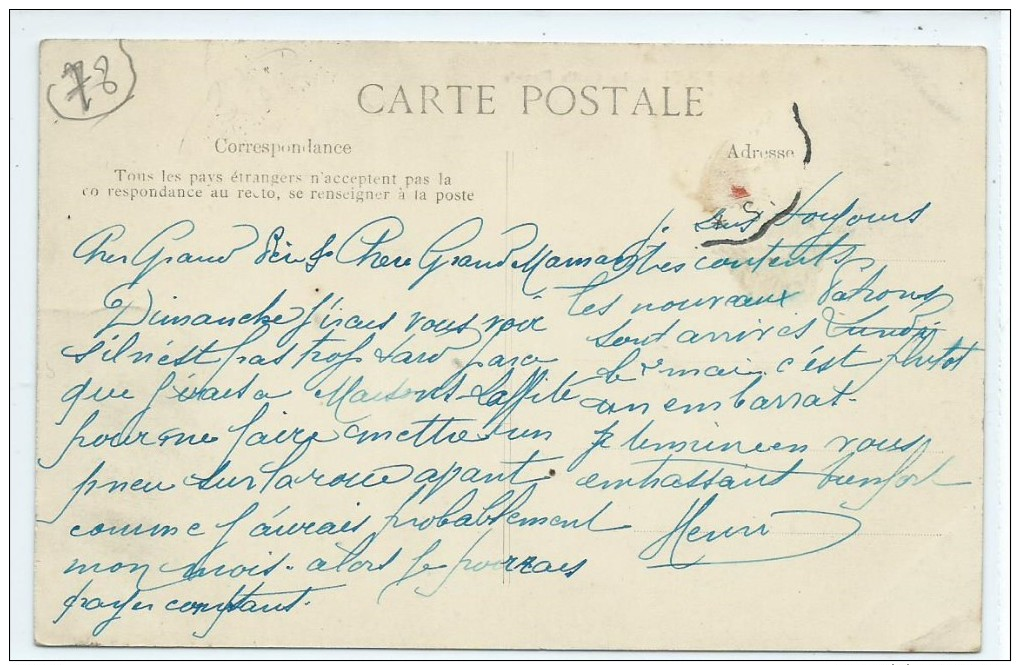 78
CARTE POSTALE
Correspondance
Tous les pays étrangers n'acceptent pas la
correspondance au recto, se renseigner à la poste
Adresse
Cher Grand Père & Chere Grand Maman
Dimanche j'irais vous voir
s'il n'est pas trop tard parce
que j'irais a Maisons-Laffite
pour me faire mettre un
pneu sur la roue avant
comme j'aurais probablement
mon mois. alors je pourrais
payer comptant.
suis toujours
tres contents
les nouveaux Patrons
sont arrivés Lundi
1er mai, c'est plutot
un embarrat.
je termine en vous
embrassant bien fort
Henri